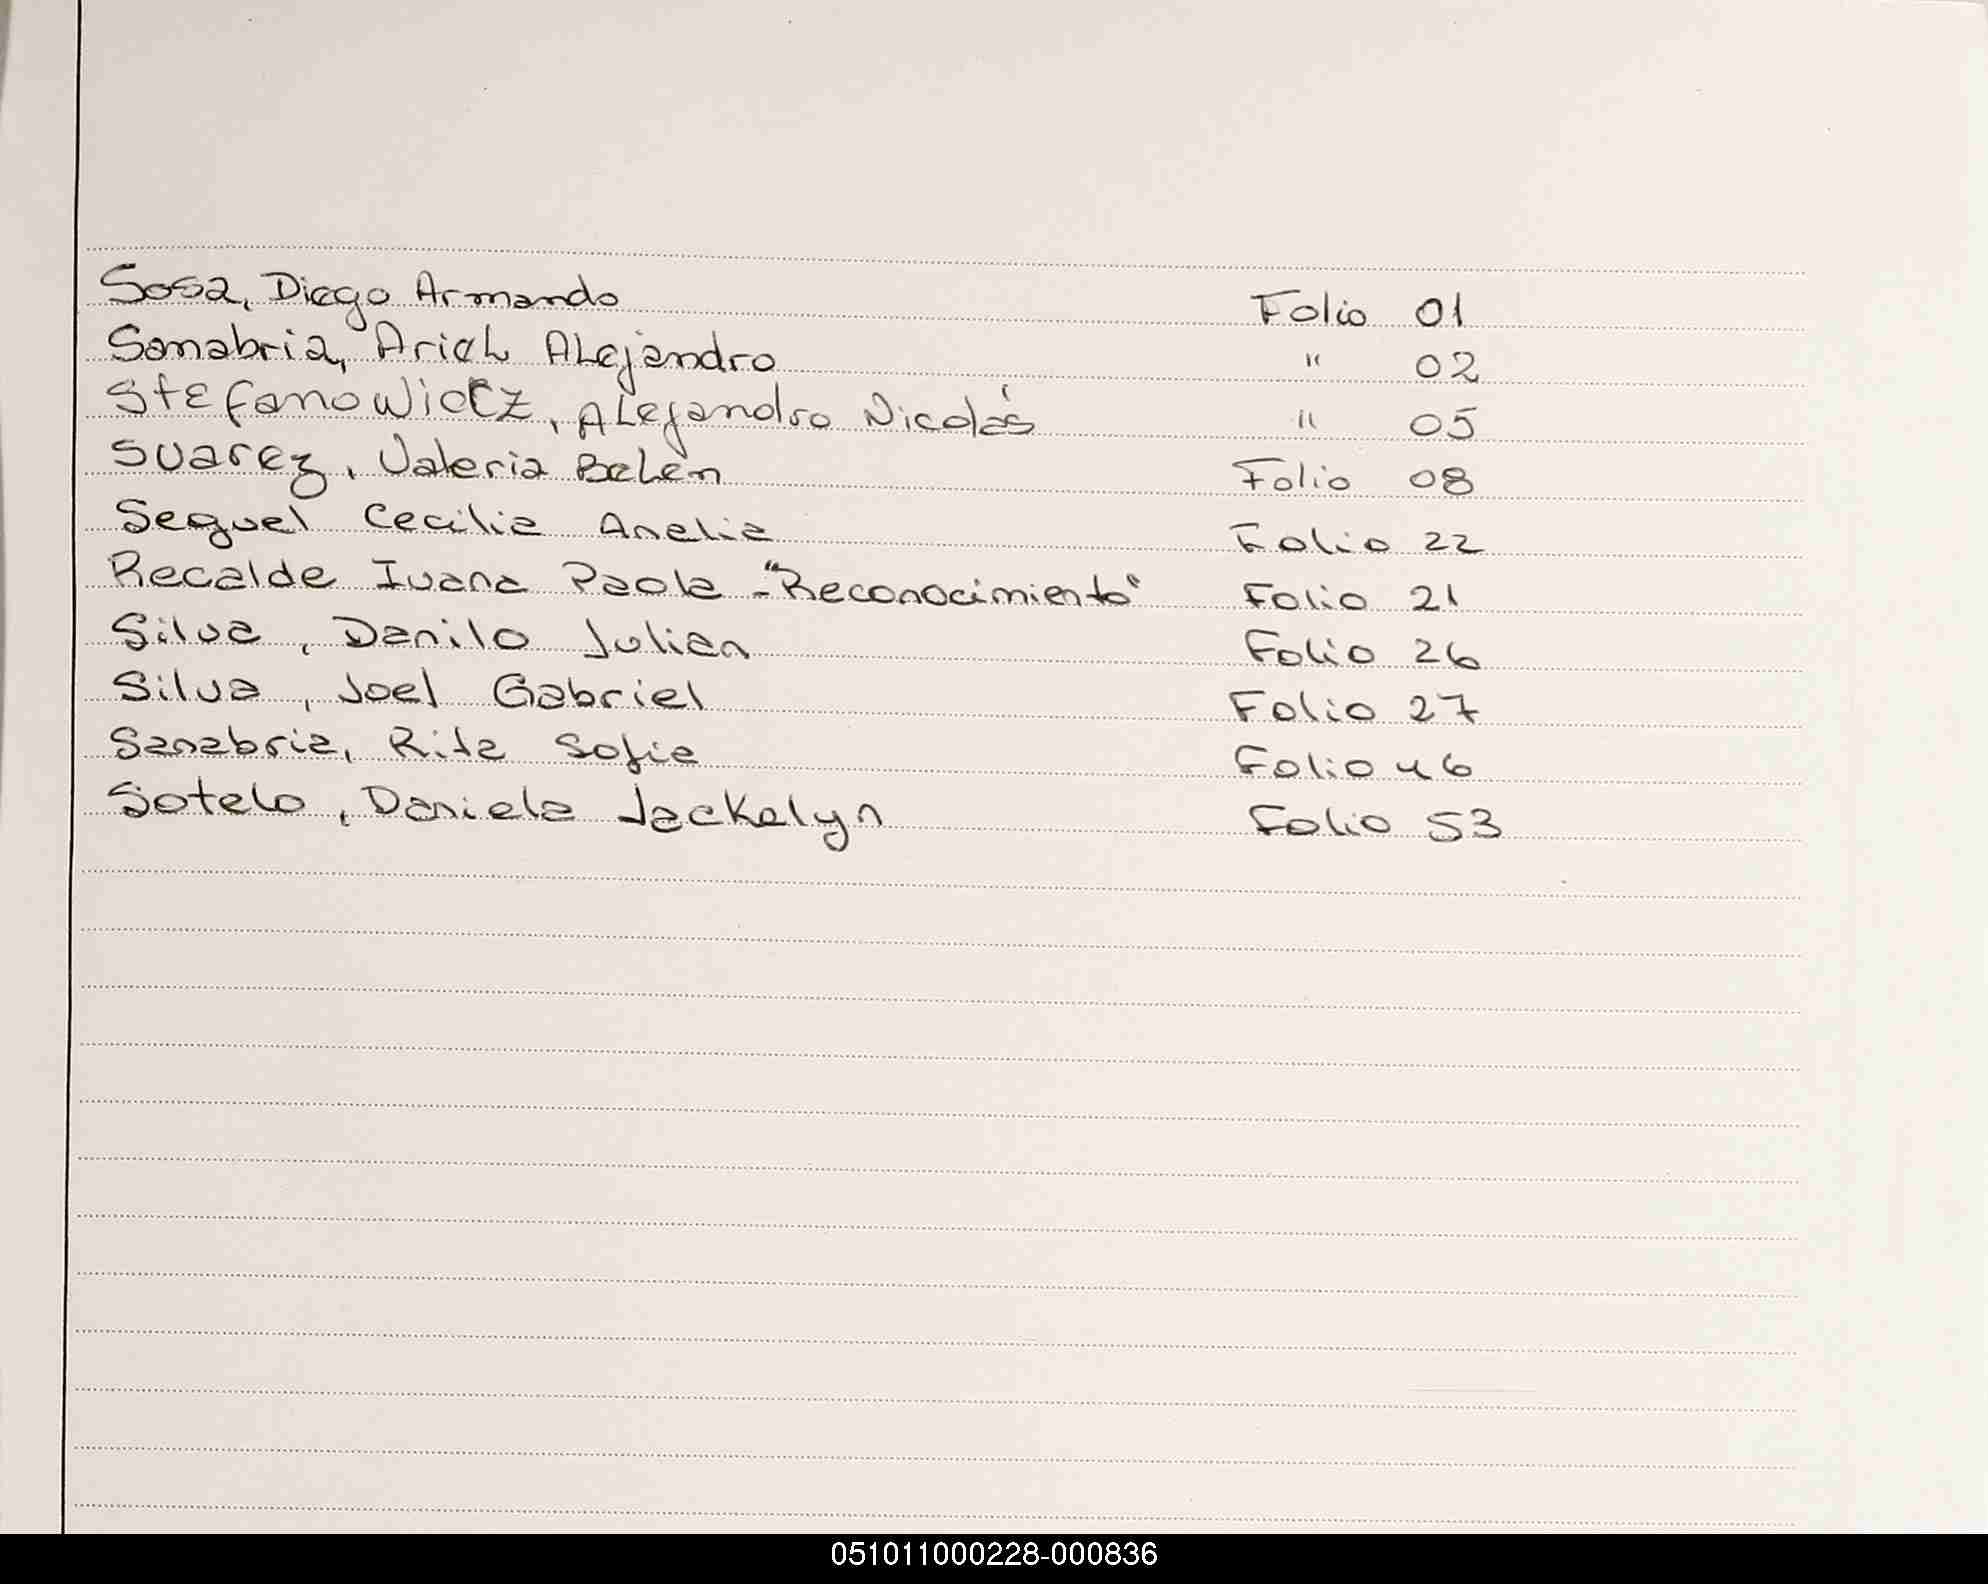 Sosa, Diego Armando Folio 01
Sanabria, Ariel Alejandro " 02
Stefanowicz, Alejandro Nicolás " 05
Suarez, Valeria Belén Folio 08
Seguel Cecilia Anelia Folio 22
Recalde Ivana Paola - "Reconocimiento" Folio 21
Silva, Danilo Julian Folio 26
Silva, Joel Gabriel Folio 27
Sanabria, Rita Sofia Folio 46
Sotelo, Daniela Jackelyn Folio 53
051011000228-000836